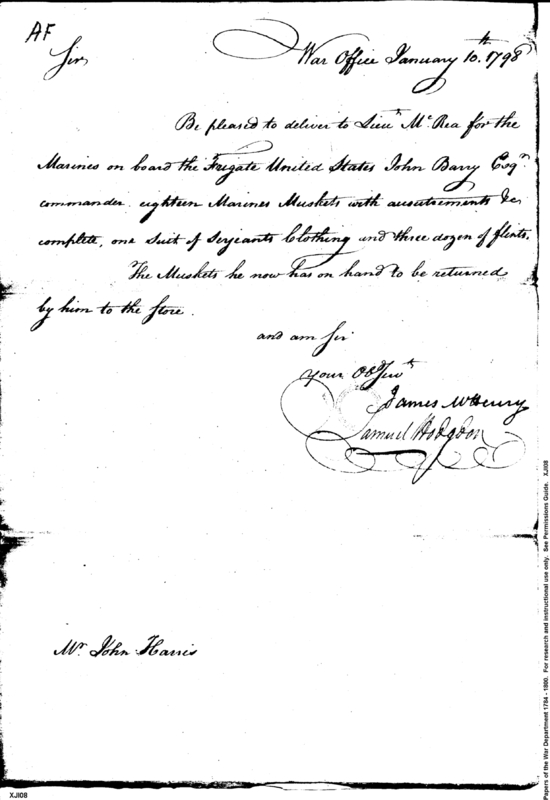 AF
Sir, War Office January 10.th 1798
Be pleased to deliver to Lieut Mc Rea for the
Marines on board the Frigate United States John Barry Esqr
commander. eighteen Marines Muskets with &c
complete, one Suit of Serjeants Clothing and three dozen of flints.
The Muskets he now has on hand to be returned
by him to the Store.
and am Sir
your Ob Servt
James McHenry
Samuel Hodgdon
Mr John Harris
XJI08
Papers of the War Department 1784 - 1800. For research and instructional use only. See Permissions Guide. XJI08